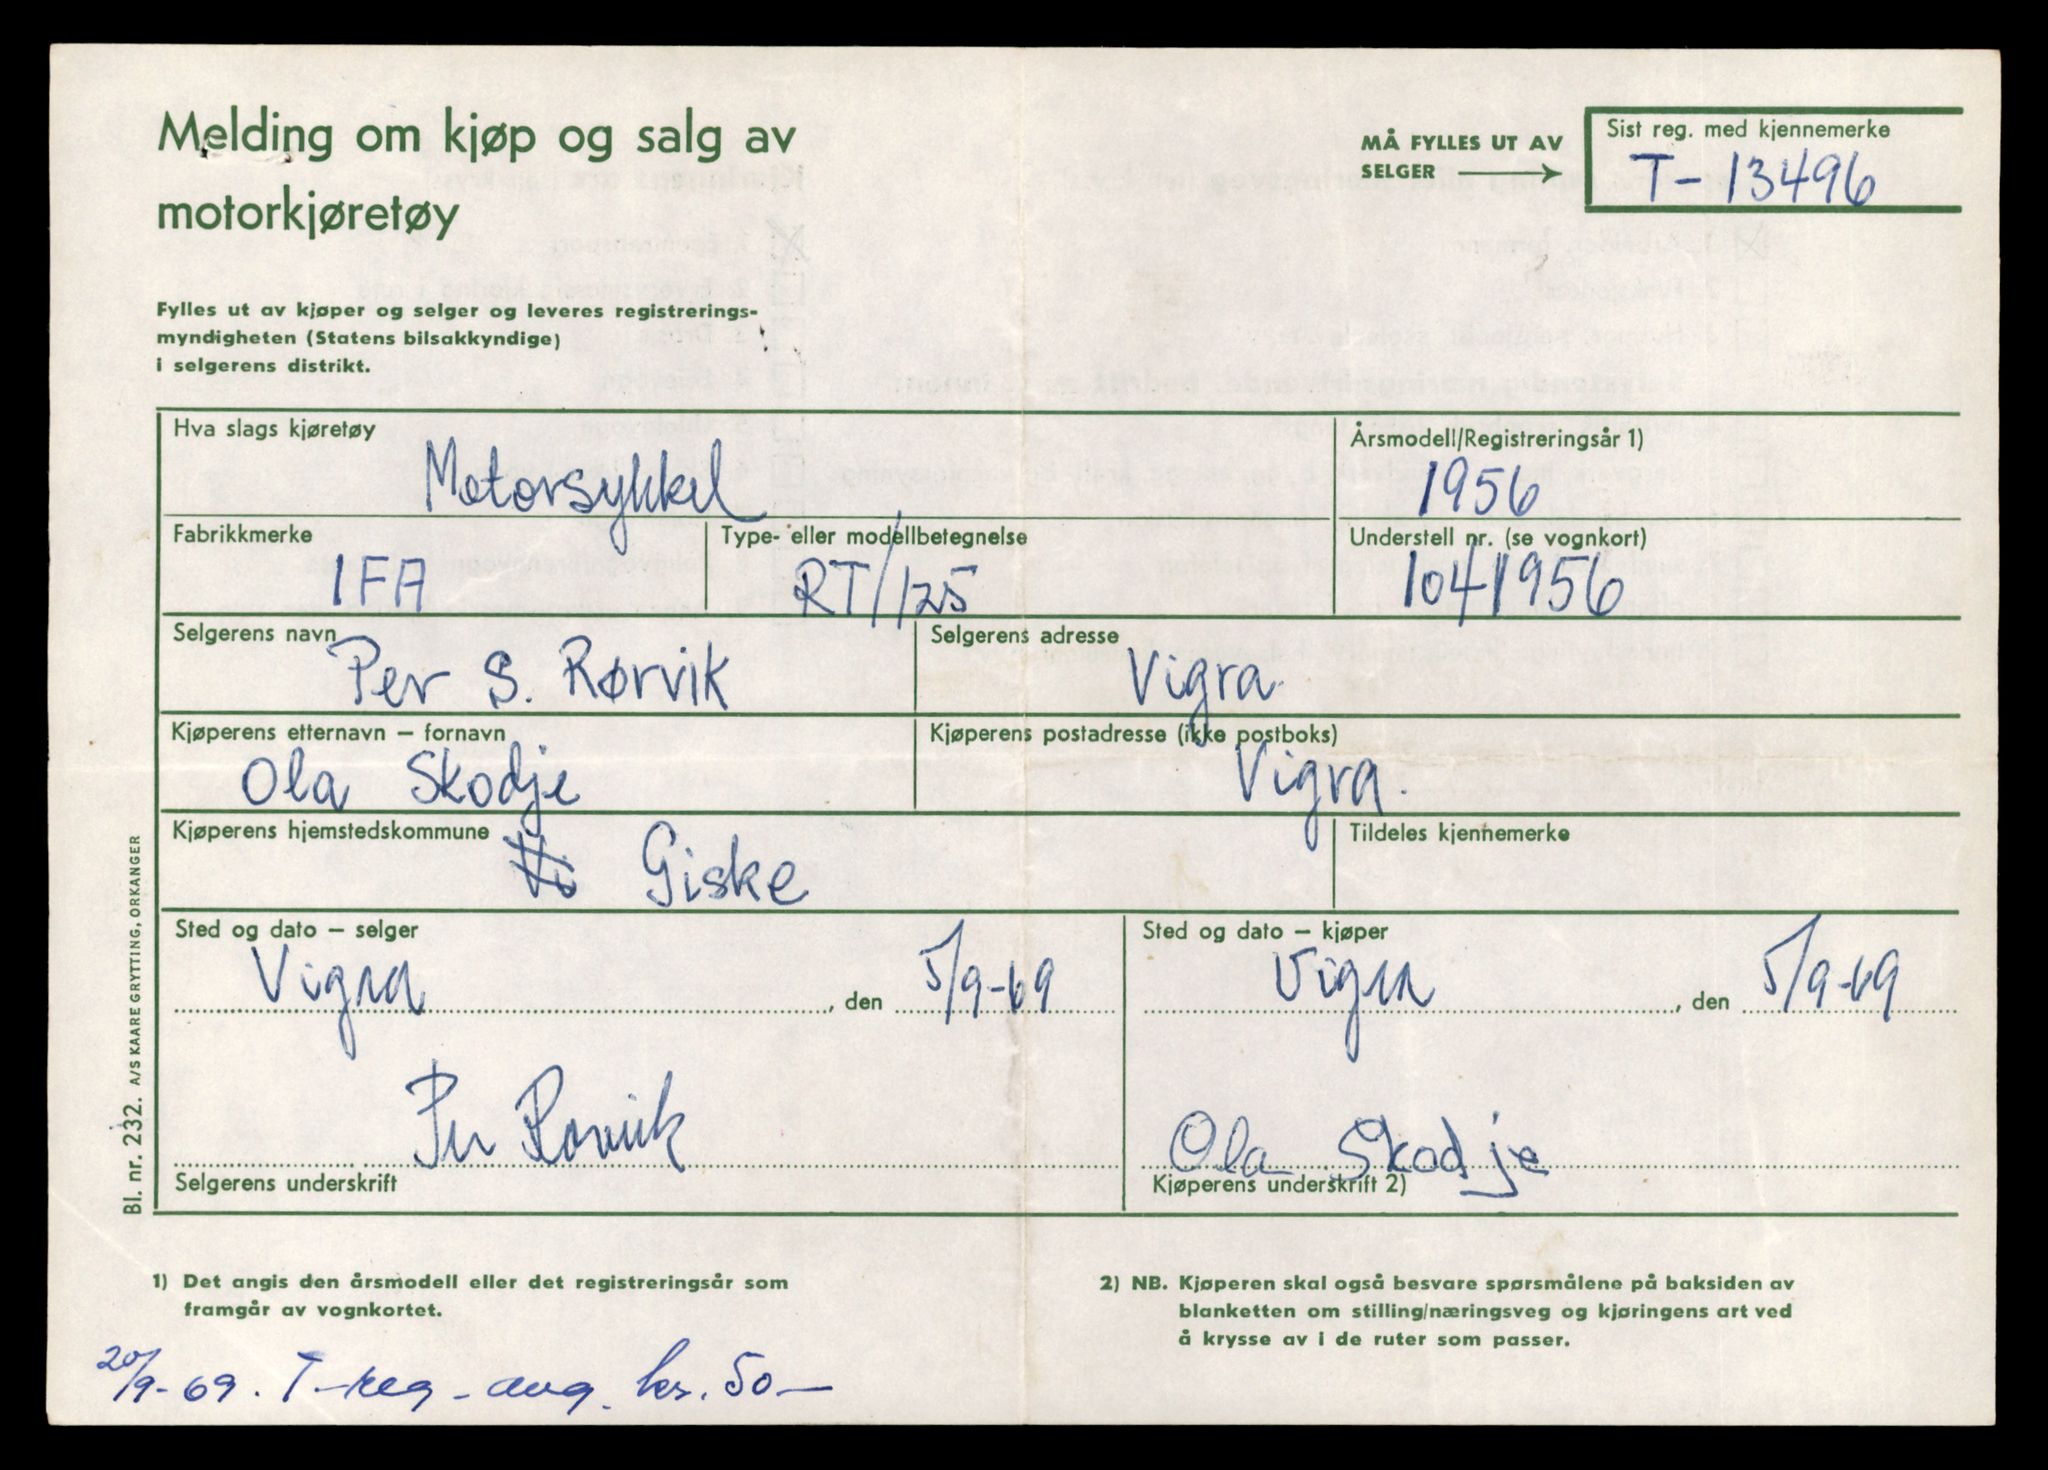 Melding om kjøp og salg av
motorkjøretøy
MÅ FYLLES UT AV
SELGER
Sist reg. med kjennemerke
T-13496
Fylles ut av kjøper og selger og leveres registrerings-
myndigheten (Statens bilsakkyndige)
i selgerens distrikt.
Hva slags kjøretøy
Motorsykkel
Årsmodell/Registreringsår 1)
1956
Fabrikkmerke
IFA
Type- eller modellbetegnelse
RT/125
Understell nr. (se vognkort)
1041956
Selgerens navn
Per S. Rørvik
Selgerens adresse
Vigra.
Kjøperens etternavn – fornavn
Ola Skodje
Kjøperens postadresse (ikke postboks)
Vigra.
Kjøperens hjemstedskommune
Vi Giske
Tildeles kjennemerke
Sted og dato – selger
Vigra, den 5/9-69
Sted og dato – kjøper
Vigra, den 5/9-69
Per Rørvik
Selgerens underskrift
Ola Skodje
Kjøperens underskrift 2)
Bl. nr. 232. A/S KAARE GRYTTING, ORKANGER
1) Det angis den årsmodell eller det registreringsår som
framgår av vognkortet.
2) NB. Kjøperen skal også besvare spørsmålene på baksiden av
blanketten om stilling/næringsveg og kjøringens art ved
å krysse av i de ruter som passer.
20/9-69. T-reg-avg. kr. 50-